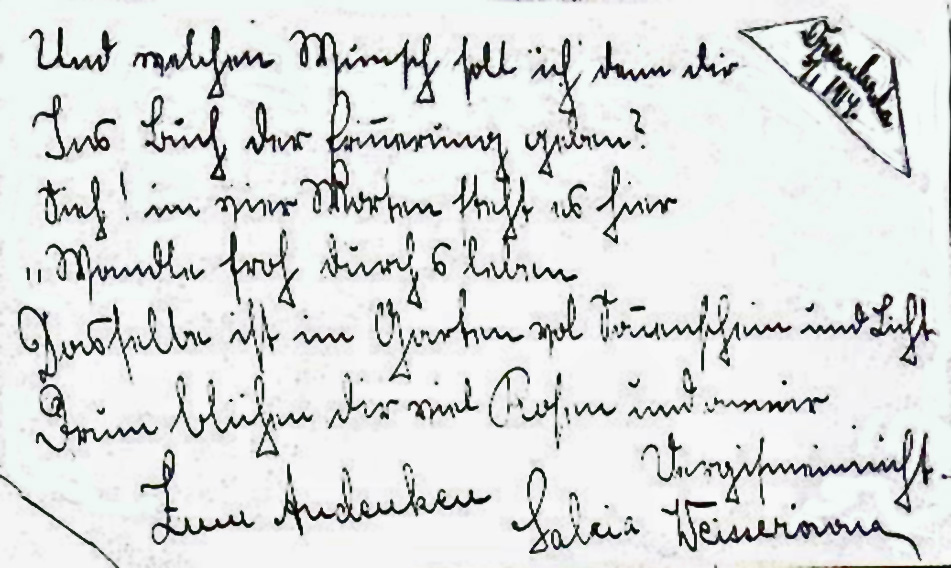 Und welchen Wunsch soll ich denn dir
Ins Buch der Erinerung geben?
Sieh! im vier Worten steht es hier
„Wandle froh durchs leben
Dasselbe ist im Garten vol Sonenschein und Licht
Drum blühen dir viel Rosen und
Vergißmeinnicht.
Zum Andenken
Salcia Weisserowna